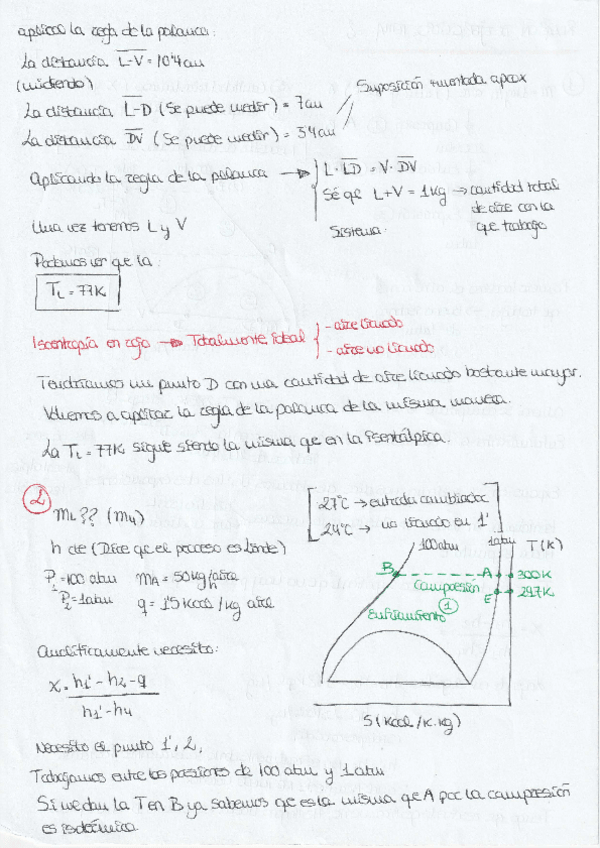 aplicao la regla de la palanca:
La distancia L-V = 10'4 cm
(midiendo)
Suposición +mentada aprox
La distancia L-D (Se puede medir) = 7cm
La distancia DV (Se puede medir) = 3'4 cm
Aplicando la regla de la palanca → L·LD = V·DV
Sé qe L+V = 1Kg → cantidad total de aire con la qe trabajo
Sistema.
Una vez tenemos L y V
Podemos ver qe la:
TL = 77K
Isentropía en rojo → Totalmente ideal { - aire licuado
- aire no licuado
Tendríamos un punto D con una cantidad de aire licuado bastante mayor.
Volvemos a aplicar la regla de la palanca de la misma manera.
La TL = 77K sigue siendo la misma qe en la isentálpica.
2
mL?? (m4)
27°C → entrada cambiador
24°C → no licuado en 1'
h de (Dice qe el proceso es Linde)
P1 = 100 atm mA = 50 kg/h aire
P2 = 1 atm q = 1'5 Kcal/kg aire
100 atm
1 atm
T(K)
B
A
300K
Compresión
1
E
297K
Enfriamiento
S (Kcal/K.kg)
Analíticamente necesito:
x = h1' - h2 - q / h1' - h4
Necesito el punto 1', 2,
Trabajamos entre las presiones de 100 atm y 1 atm
Si me dan la T en B ya sabemos qe es la misma qe A por la compresión
es isotérmica.